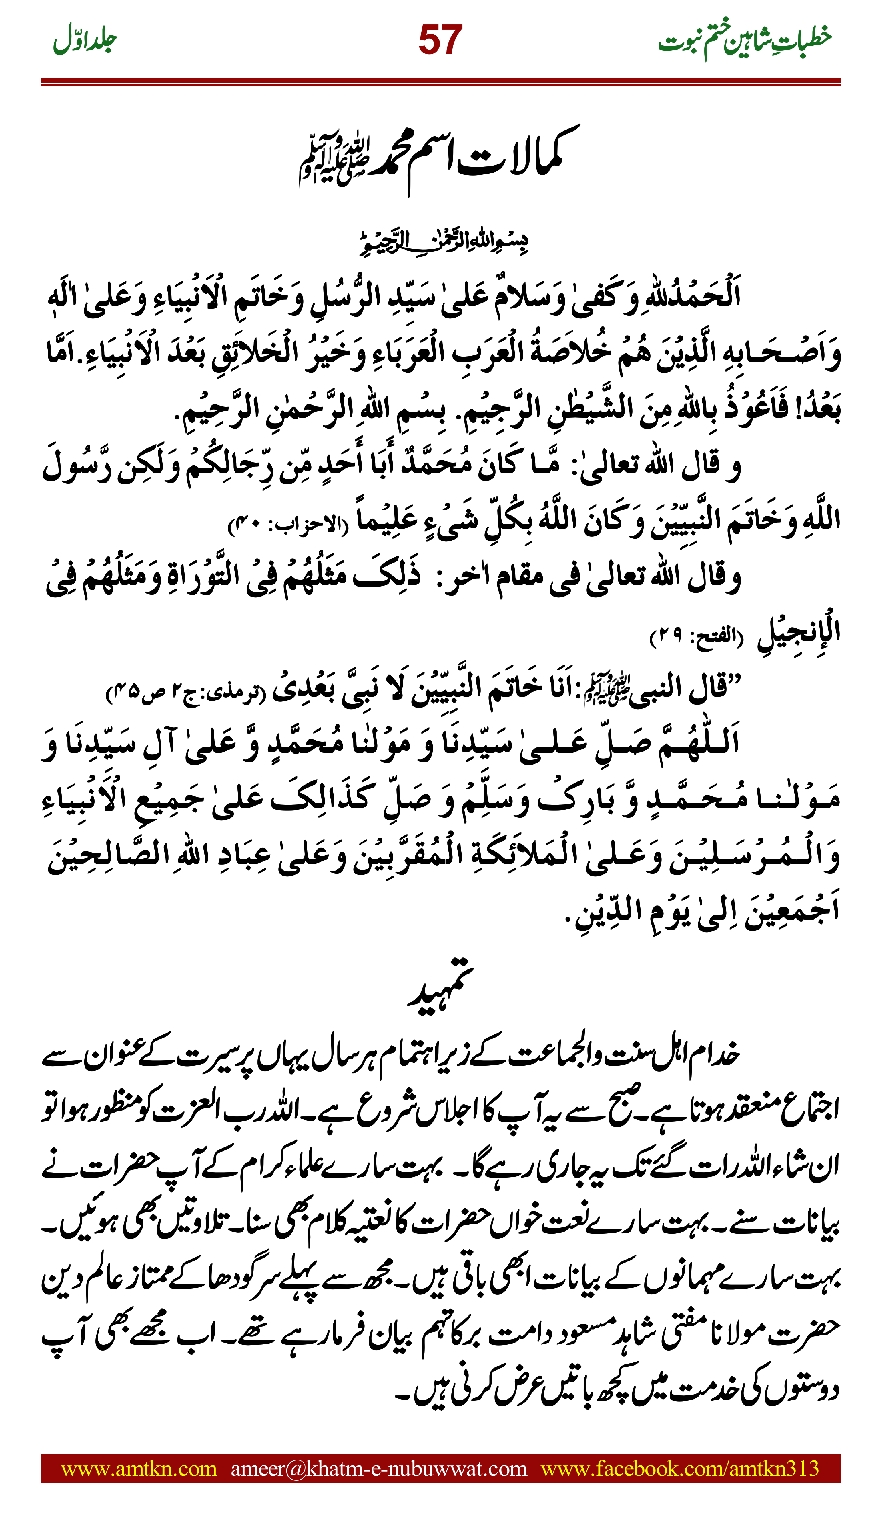 خطباتِ شاہین ختم نبوت 57 جلد اوّل
کمالات اسم محمد ﷺ
بِسْمِ اللهِ الرَّحْمٰنِ الرَّحِيْمِ
اَلْحَمْدُلِلّٰهِ وَ كَفىٰ وَسَلامٌ عَلىٰ سَيّدِ الرُّسُلِ وَخَاتَمِ الْاَنْبِيَاءِ وَعَلىٰ اٰلهٖ
وَاَصْحَابِهِ الَّذِيْنَ هُمْ خُلاَصَةُ الْعَرَبِ الْعَرَبَاءِ وَخَيْرُ الْخَلائِقِ بَعْدَ الْاَنْبِيَاءِ. اَمَّا
بَعْدُ! فَاَعُوْذُ بِاللهِ مِنَ الشَّيْطٰنِ الرَّجِيْمِ. بِسْمِ اللهِ الرَّحْمٰنِ الرَّحِيْمِ.
و قال الله تعالىٰ: مَّا كَانَ مُحَمَّدٌ أَبَا أَحَدٍ مِّن رِّجَالِكُمْ وَلَكِن رَّسُولَ
اللَّهِ وَخَاتَمَ النَّبِيِّيْنَ وَكَانَ اللَّهُ بِكُلِّ شَىْءٍ عَلِيْماً (الاحزاب: ۴۰)
و قال الله تعالىٰ فى مقام اٰخر: ذَلِكَ مَثَلُهُمْ فِىْ التَّوْرَاةِ وَمَثَلُهُمْ فِىْ
الْإِنجِيْلِ (الفتح: ۲۹)
”قال النبى ﷺ: اَنَا خَاتَمَ النَّبِيِّيْنَ لَا نَبِىَّ بَعْدِىْ (ترمذی: ج۲ ص۴۵)
اَللّٰهُمَّ صَلِّ عَلىٰ سَيّدِنَا وَ مَوْلٰنَا مُحَمَّدٍ وَّ عَلىٰ آلِ سَيّدِنَا وَ
مَوْلٰنَا مُحَمَّدٍ وَّ بَارِكْ وَسَلِّمْ وَ صَلِّ كَذَالِكَ عَلىٰ جَمِيْعِ الْاَنْبِيَاءِ
وَالْمُرْسَلِيْنَ وَعَلىٰ الْمَلاَئِكَةِ الْمُقَرَّبِيْنَ وَعَلىٰ عِبَادِ اللهِ الصَّالِحِيْنَ
اَجْمَعِيْنَ اِلىٰ يَوْمِ الدِّيْنِ.
تمہید
خدام اہل سنت والجماعت کے زیر اہتمام ہر سال یہاں پر سیرت کے عنوان سے
اجتماع منعقد ہوتا ہے۔ صبح سے یہ آپ کا اجلاس شروع ہے۔ اللہ رب العزت کو منظور ہوا تو
ان شاء اللہ رات گئے تک یہ جاری رہے گا۔ بہت سارے علماء کرام کے آپ حضرات نے
بیانات سنے۔ بہت سارے نعت خواں حضرات کا نعتیہ کلام بھی سنا۔ تلاوتیں بھی ہوئیں۔
بہت سارے مہمانوں کے بیانات ابھی باقی ہیں۔ مجھ سے پہلے سرگودھا کے ممتاز عالم دین
حضرت مولانا مفتی شاہد مسعود دامت برکاتہم بیان فرما رہے تھے۔ اب مجھے بھی آپ
دوستوں کی خدمت میں کچھ باتیں عرض کرنی ہیں۔
www.amtkn.com ameer@khatm-e-nubuwwat.com www.facebook.com/amtkn313